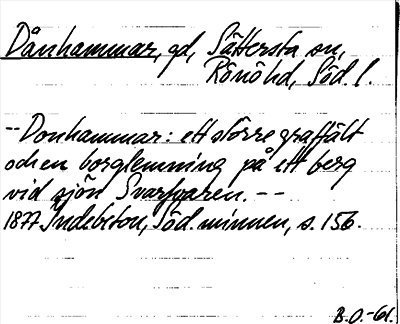 Dånhammar, gd, Sättersta sn,
Rönö hd, Söd. l.
-- Donhammar: ett större graffält
och en borglemning på ett berg
vid sjön --
1877 Indebetou, Söd. minnen, s. 156.
B.O.-61.